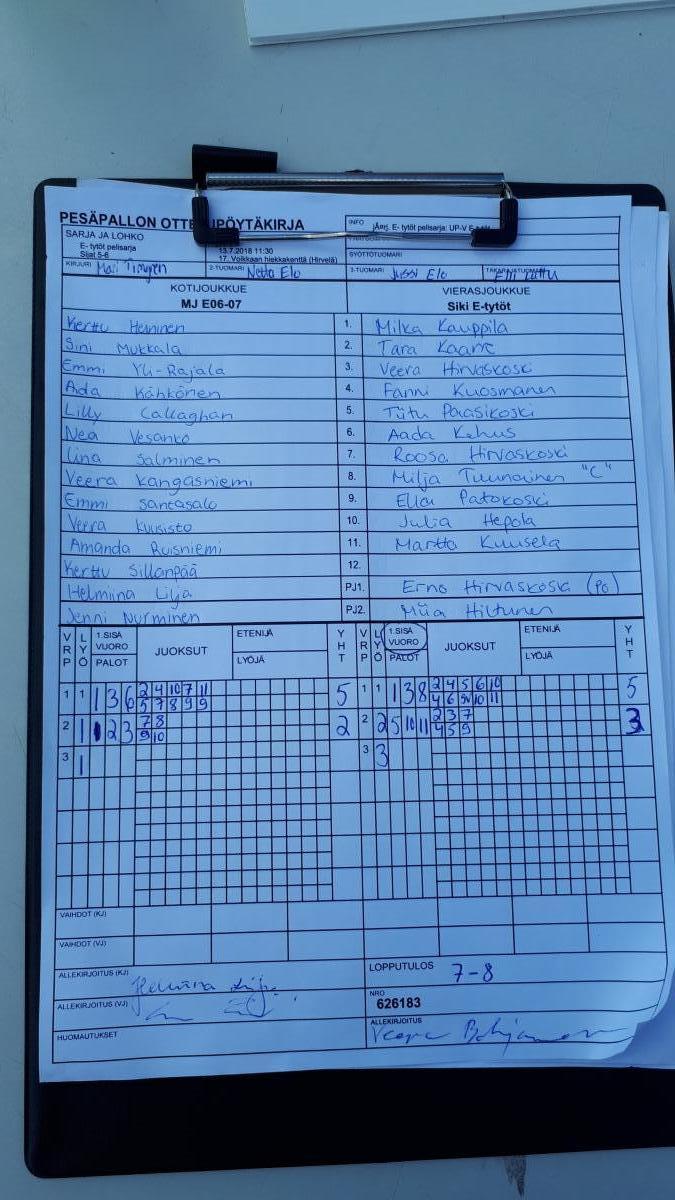 PESÄPALLON OTTELUPÖYTÄKIRJA
INFO
jÄmj. E- tytöt pelisarja: UP-V
SARJA JA LOHKO
E- tytöt pelisarja
Sijat 5-6
13.7.2018 11:30
17. Voikkaan hiekkakenttä (Hirvelä)
SYÖTTÖTUOMARI
KIRJURI
2-TUOMARI Netta Elo
3-TUOMARI Jussi Elo
TAKARAJATUOMARI
KOTIJOUKKUE
MJ E06-07
VIERASJOUKKUE
Siki E-tytöt
Kerttu Heininen 1. Milka Kauppila
Sini Mukkala 2. Tara Kaarre
Emmi Yli-Rajala 3. Veera Hirvaskoski
Ada Kähkönen 4. Fanni Kuosmanen
Lilly Callaghan 5. Tutu Paasikoski
Nea Vesanko 6. Aada Kehus
Iina Salminen 7. Roosa Hirvaskoski
Veera Kangasniemi 8. Milja Tuunainen "C"
Emmi Santasalo 9. Ella Patokoski
Veera Kuusisto 10. Julia Hepola
Amanda Ruisniemi 11. Martta Kuusela
Kerttu Sillanpää 12.
Helmiina Lilja PJ1. Erno Hirvaskoski (PO)
Jenni Nurminen PJ2. Miia Hiltunen
VRP LYÖ 1.SISÄ VUORO PALOT JUOKSUT ETENIJÄ LYÖJÄ YHT VRP LYÖ 1.SISÄ VUORO PALOT JUOKSUT ETENIJÄ LYÖJÄ YHT
1 1 1 3 6 2 4 10 7 11 5 1 1 1 3 8 2 4 5 6 10 5
5 7 8 9 9 4 6 10 11
2 1 2 3 7 8 2 2 2 5 10 11 2 3 7 3
9 10 4 5 9
3 1 3 3
VAIHDOT (KJ)
VAIHDOT (VJ)
ALLEKIRJOITUS (KJ) Helmiina Lilja
LOPPUTULOS 7-8
ALLEKIRJOITUS (VJ)
NRO
626183
HUOMAUTUKSET
ALLEKIRJOITUS